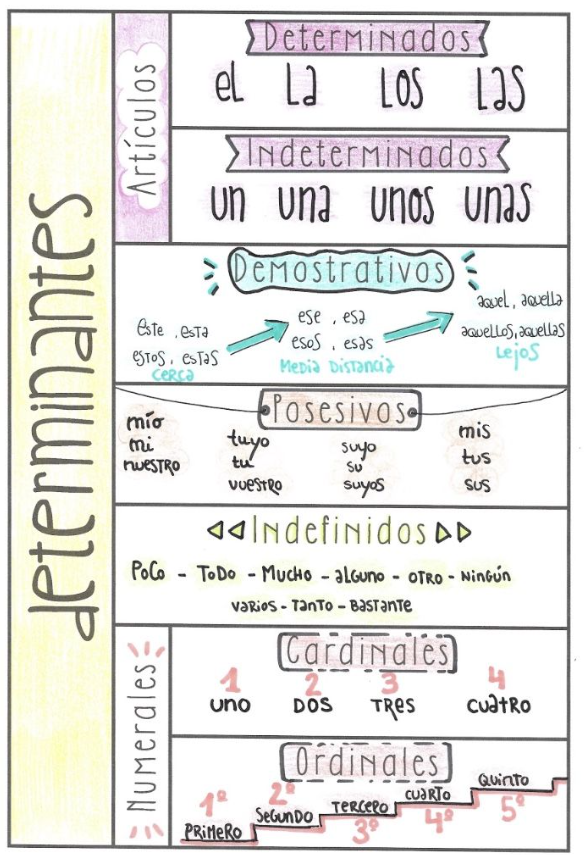 determinantes
Artículos
Determinados
el la los las
Indeterminados
un una unos unas
Demostrativos
este, esta
estos, estas
cerca
ese, esa
esos, esas
Media distancia
aquel, aquella
aquellos, aquellas
Lejos
Posesivos
mío
mi
nuestro
tuyo
tu
vuestro
suyo
su
suyos
mis
tus
sus
Indefinidos
Poco - Todo - Mucho - alguno - otro - ningún
varios - Tanto - Bastante
Numerales
Cardinales
1 2 3 4
uno dos tres cuatro
Ordinales
1º 2º 3º 4º 5º
Primero Segundo Tercero cuarto Quinto